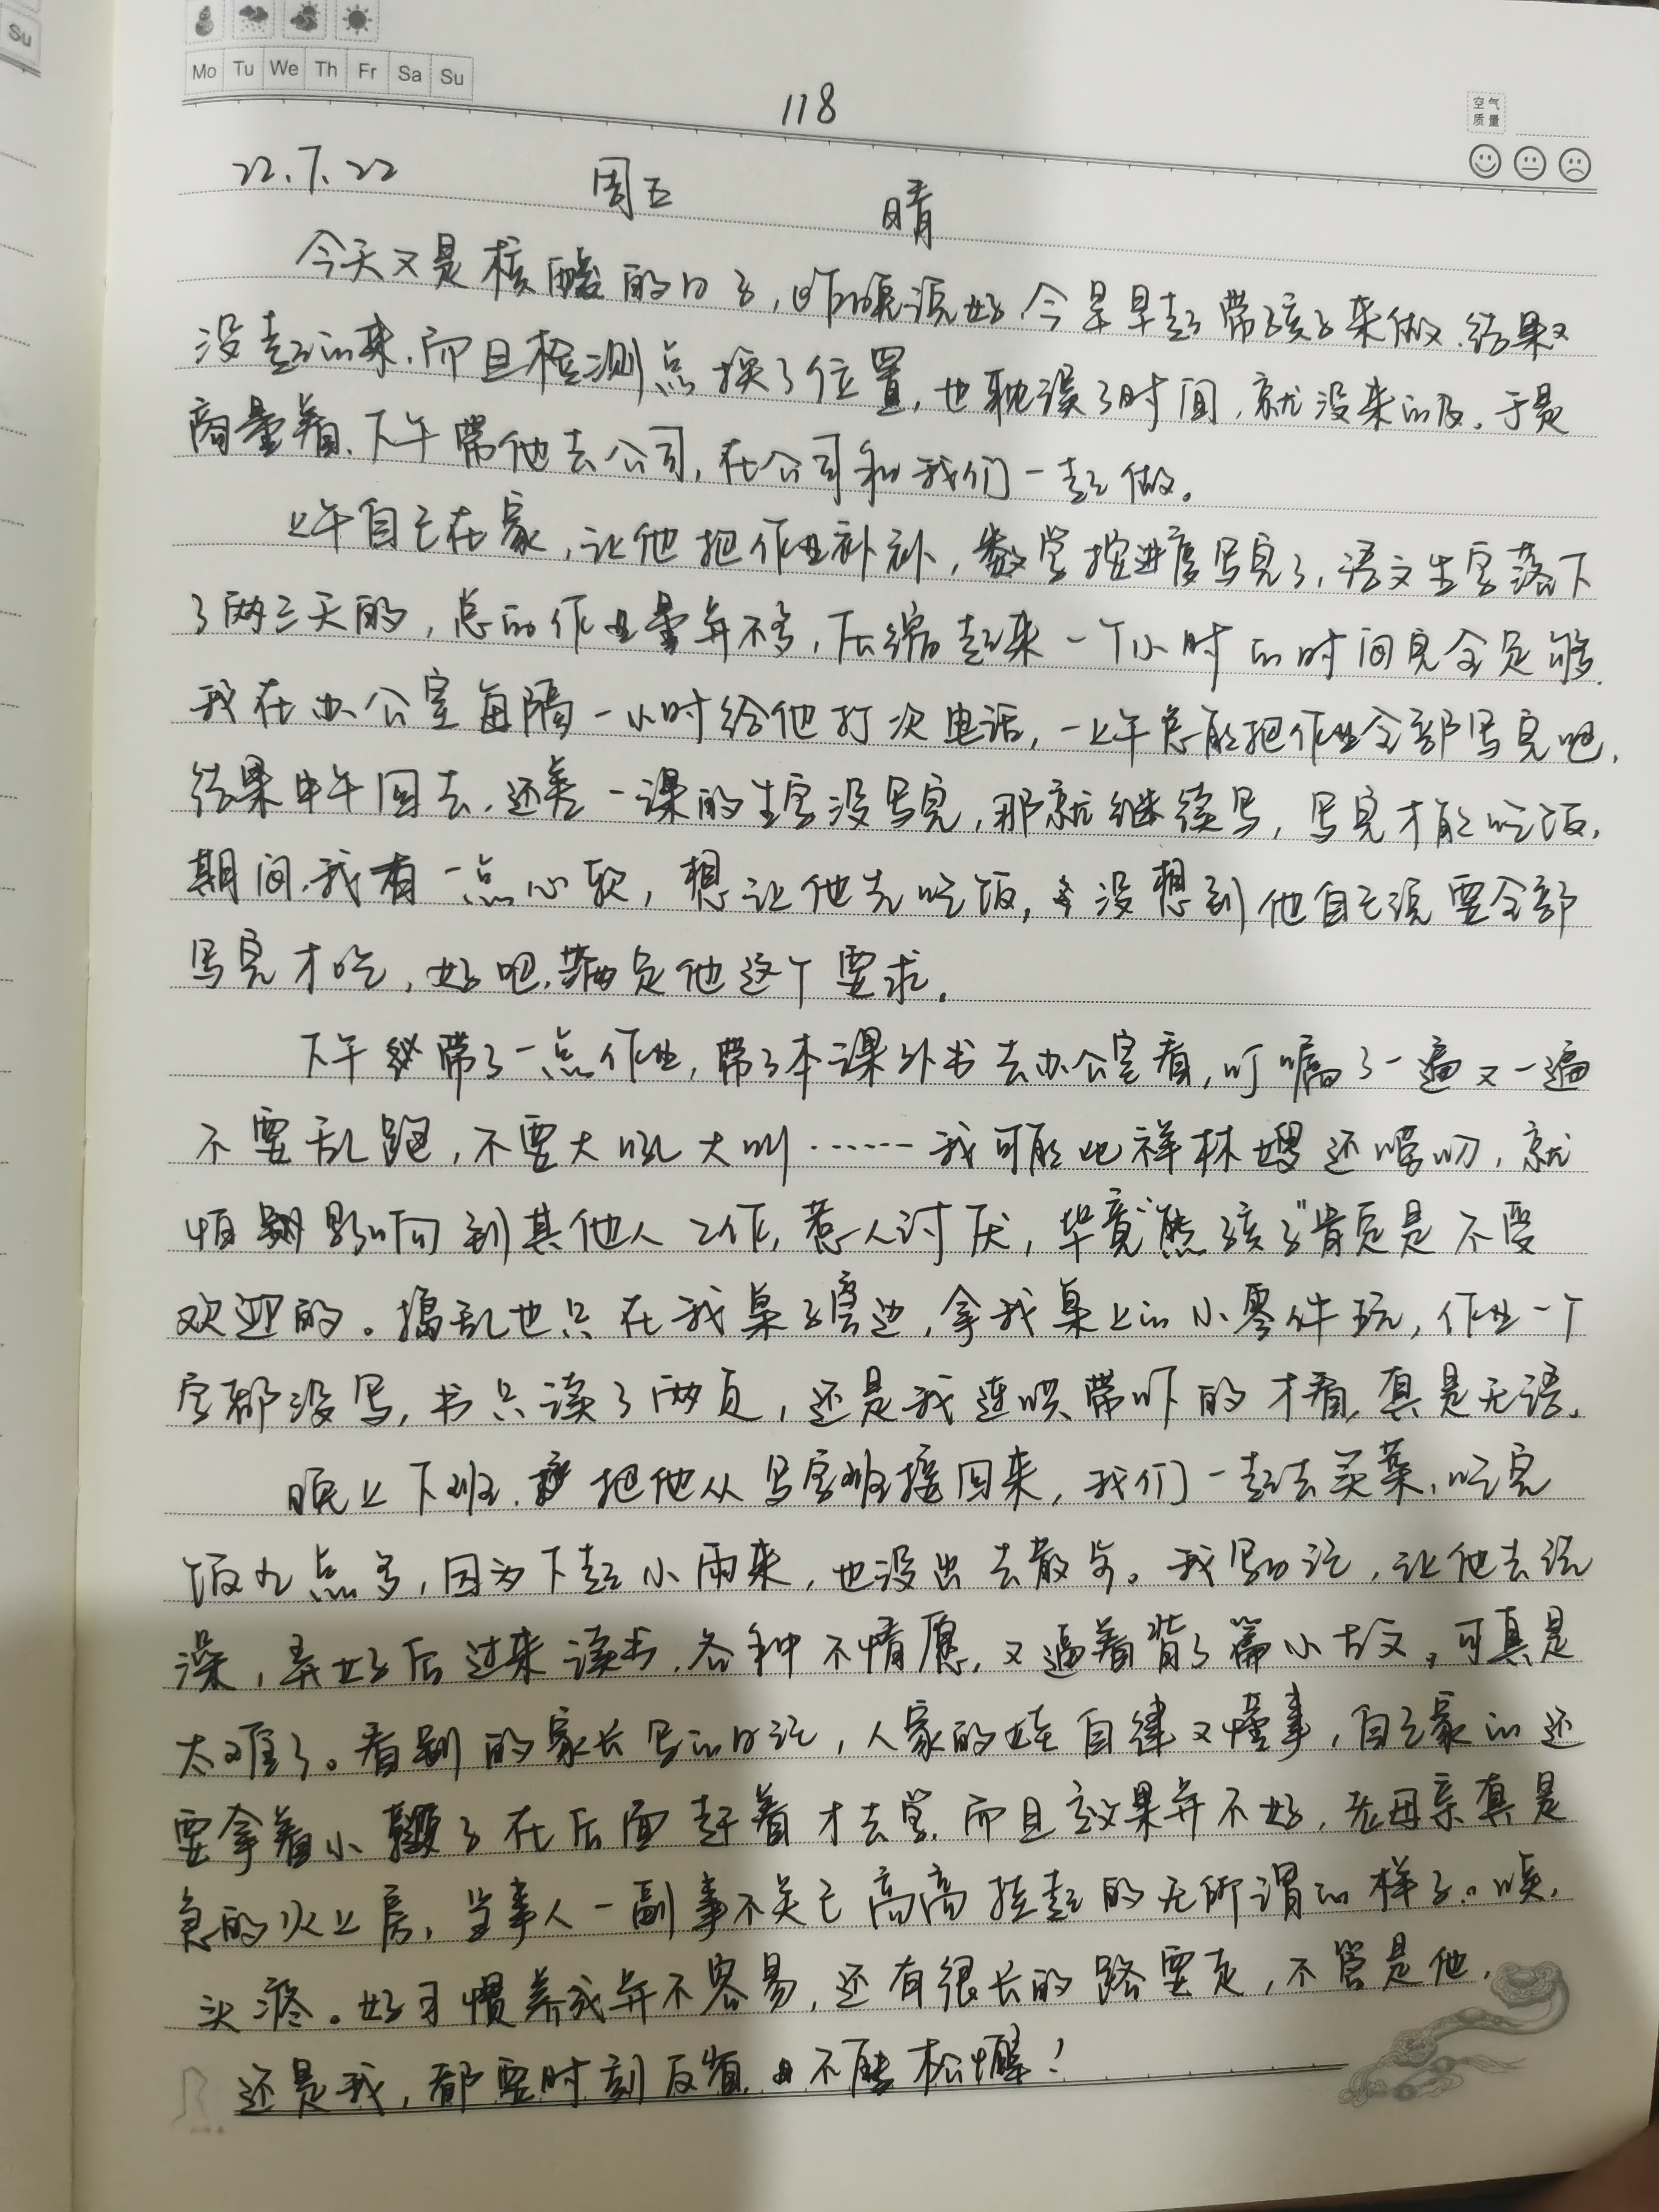 Su
Mo Tu We Th Fr Sa Su
118
空气
质量
22.7.22 周五 晴
今天又是核酸的日子，昨晚说好今早早起带孩子来做，结果又
没起的来，而且检测点换了位置，也耽误了时间，就没来的及，于是
商量着，下午带他去公司，在公司和我们一起做。
上午自己在家，让他把作业补补，数学按进度写完了，语文生字落下
了两三天的，总的作业量并不多，压缩起来一个小时的时间完全足够，
我在办公室每隔一小时给他打次电话，一上午总能把作业全部写完吧，
结果中午回去，还差一课的生字没写完，那就继续写，写完才能吃饭，
期间，我有一点心软，想让他先吃饭，没想到他自己说要全部
写完才吃，好吧，满足他这个要求。
下午带了一点作业，带了本课外书去办公室看，叮嘱了一遍又一遍
不要乱跑，不要大吼大叫……我可能比祥林嫂还唠叨，就
怕影响到其他人工作，惹人讨厌，毕竟“熊孩子”肯定是不受
欢迎的。捣乱也只在我桌子旁边，拿我桌上的小零件玩，作业一个
字都没写，书只读了两页，还是我连哄带吓的才看，真是无语。
晚上下班，把他从写字班接回来，我们一起去买菜，吃完
饭九点多，因为下起小雨来，也没出去散步。我写日记，让他去洗
澡，弄好后过来读书，各种不情愿，又逼着背了篇小古文。可真是
太难了。看别的家长写的日记，人家的娃自律又懂事，自己家的还
要拿着小鞭子在后面赶着才去学，而且效果并不好，老母亲真是
急的火上房，当事人一副事不关己高高挂起的无所谓的样子。唉，
头疼。好习惯养成并不容易，还有很长的路要走，不管是他，
还是我，都要时刻反省，不能松懈！